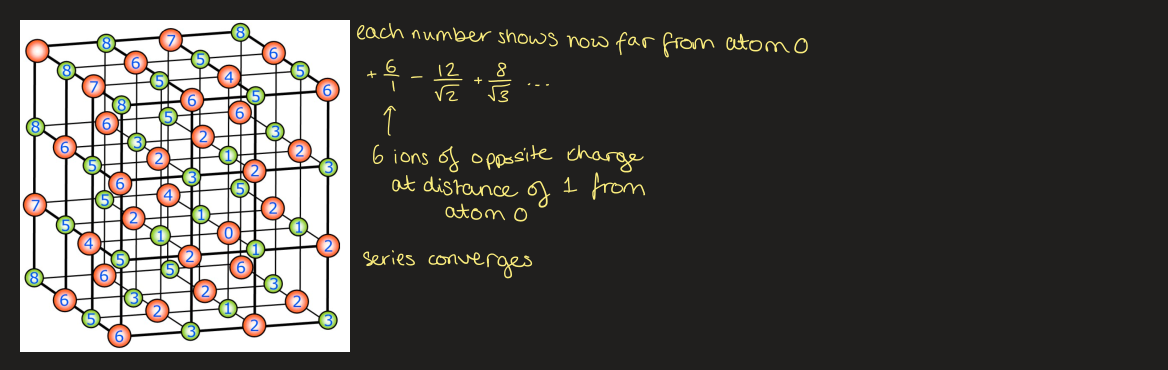 each number shows how far from atom 0
+ 6/1 - 12/√2 + 8/√3 ...
↑
6 ions of opposite charge
at distance of 1 from
atom 0
series converges
8 7 8
8 6 5 6
7 5 4 5
8 6 5 6
8 6 5 6 3
6 3 2 2
5 2 1 3
6 3 2
7 5 4 5 2
5 2 1 1
4 1 0 2
5 2 1
8 6 5 6 3
6 3 2 2
5 2 1 3
6 3 2